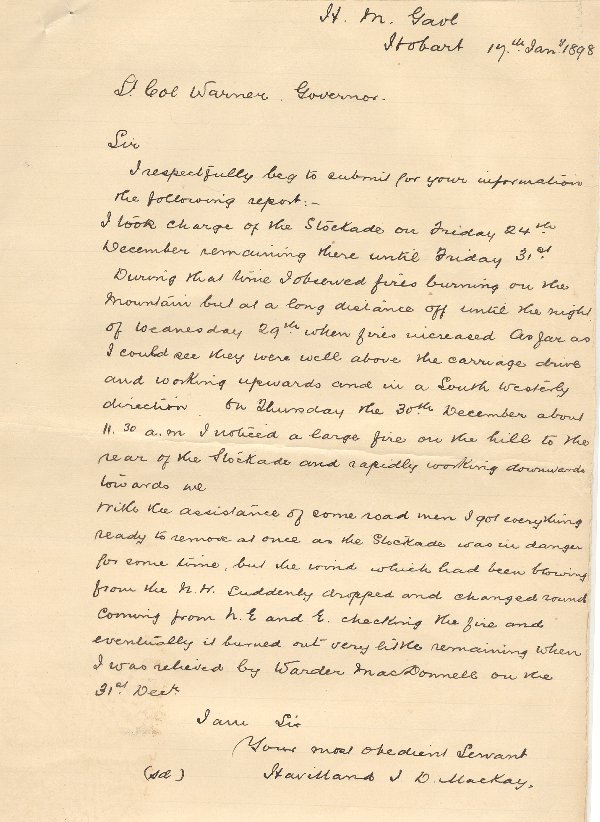 H. M. Gaol
Hobart 17th Jany 1898
Lt Col Warner. Governor.
Sir
I respectfully beg to submit for your information
the following report:-
I took charge of the Stockade on Friday 24th
December remaining there until Friday 31st.
During that time I observed fires burning on the
Mountain but at a long distance off until the night
of Wednesday 29th when fires increased As far as
I could see they were well above the carriage drive
and working upwards and in a South Westerly
direction. On Thursday the 30th December about
11.30 a.m I noticed a large fire on the hill to the
rear of the Stockade and rapidly working downwards
towards we
With the assistance of some road men I got everything
ready to remove at once as the Stockade was in danger
for some time, but the wind which had been blowing
from the N.W. suddenly dropped and changed round
coming from N. E and E. checking the fire and
eventually it burned out very little remaining when
I was relieved by Warder MacDonnell on the
31st Decr
I am Sir
Your most obedient Servant
(sd) Havilland J. D. Mackay.